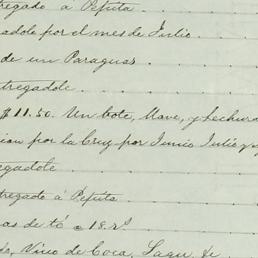 tregado á Pepita
gadole por el mes de Julio.
de un Paraguas.
tregadole
$11.50. Un bote, llave, y hechura
cion por la Cruz por Junio Julio y
egadole
tregado á Pepita
as de té a 18.rs
de, Vino de Coca, Sagu, &